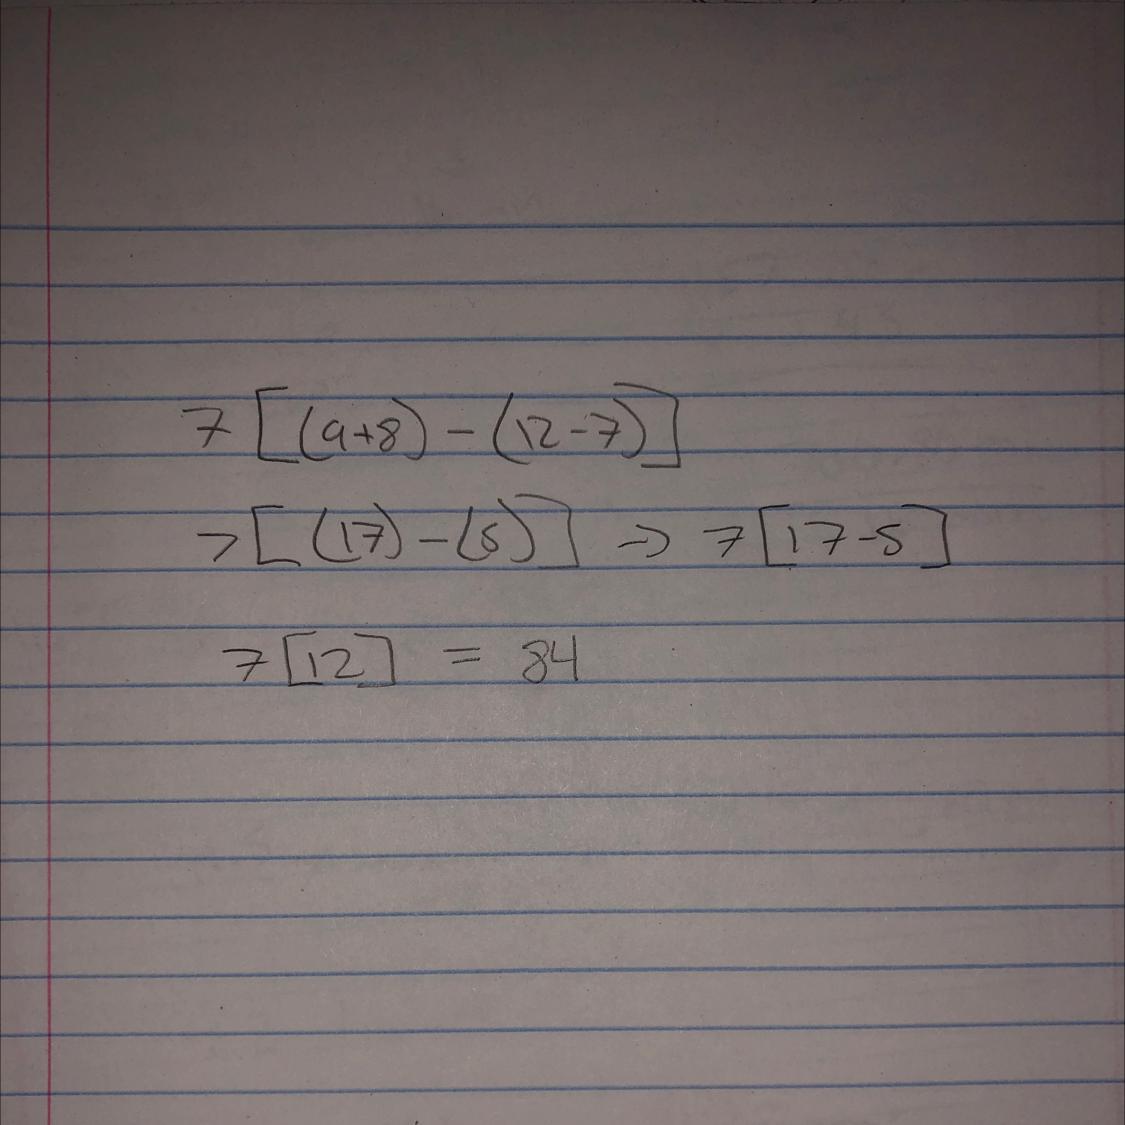 7[(9+8)-(12-7)]
7[(17)-(5)] → 7[17-5]
7[12] = 84